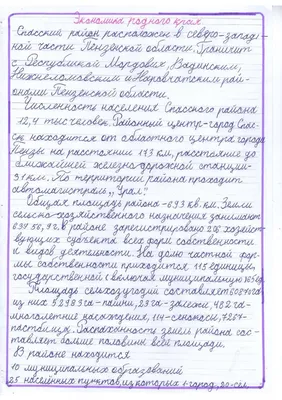 Экономика родного края
Спасский район расположен в северо-запад-
ной части Пензенской области. Граничит
с Республикой Мордовия, Вадинским,
Нижнеломовским и Наровчатским рай-
онами Пензенской области.
Численность населения Спасского района
12,4 тыс человек. Районный центр-город Спас-
ск находится от областного центра города
Пензы на расстоянии 143 км, расстояние до
ближайшей железно-дорожной станции-
51 км. По территории района проходит
автомагистраль "Урал".
Общая площадь района-693 кв. км. Земли
сельско-хозяйственного назначения занимают
в районе зарегистрировано 206 хозяйст-
вующих субъекта всех форм собственности
и видов деятельности. На долю частной фор-
мы собственности приходится 115 единицы,
государственной с волюкой муниципальную
Площадь сельхозугодий составляет
из них 52953га-пашни, 29га-залежи, 482га-
многолетние насаждения, 114-сенокосы, 7257-
пастбища. Распаханность земель района сос-
тавляет больше половины всей площади.
В районе находится
10 муниципальных образований
25 населённых пунктов, из которых 1-город, 20-сёл